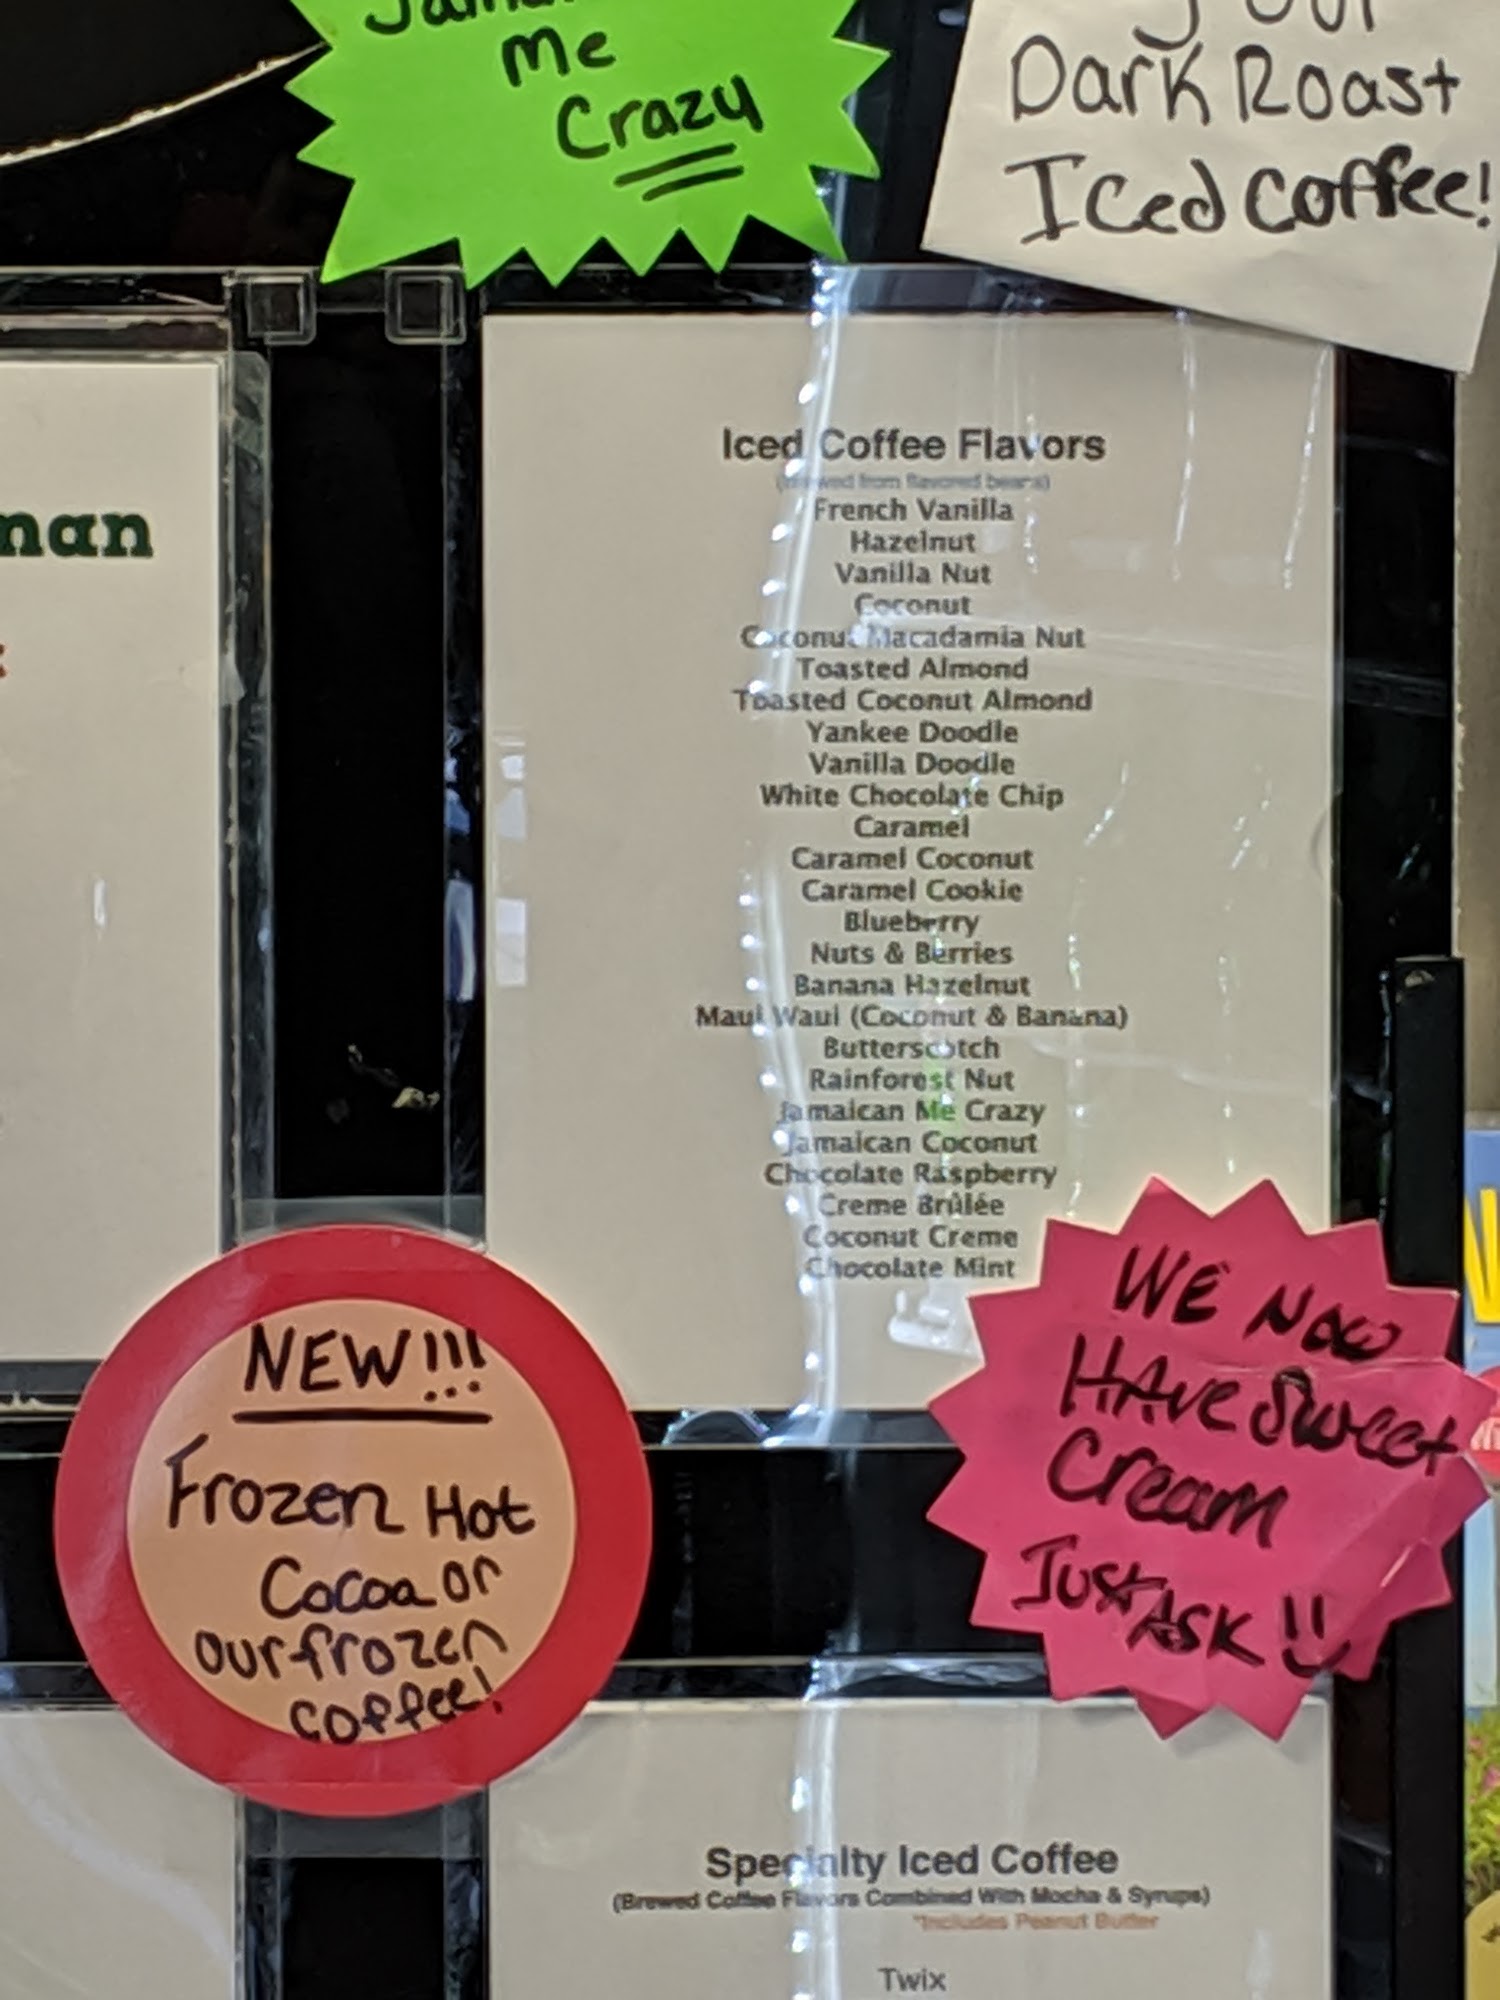 Me
Crazy
Dark Roast
Iced Coffee!
man
Iced Coffee Flavors
(brewed from flavored beans)
French Vanilla
Hazelnut
Vanilla Nut
Coconut
Coconut Macadamia Nut
Toasted Almond
Toasted Coconut Almond
Yankee Doodle
Vanilla Doodle
White Chocolate Chip
Caramel
Caramel Coconut
Caramel Cookie
Blueberry
Nuts & Berries
Banana Hazelnut
Maui Waui (Coconut & Banana)
Butterscotch
Rainforest Nut
Jamaican Me Crazy
Jamaican Coconut
Chocolate Raspberry
Creme Brûlée
Coconut Creme
Chocolate Mint
NEW!!!
Frozen Hot
Cocoa or
our frozen
coffee!
WE Now
HAve Sweet
Cream
Just ASK !!
Specialty Iced Coffee
(Brewed Coffee Flavors Combined With Mocha & Syrups)
*Includes Peanut Butter
Twix